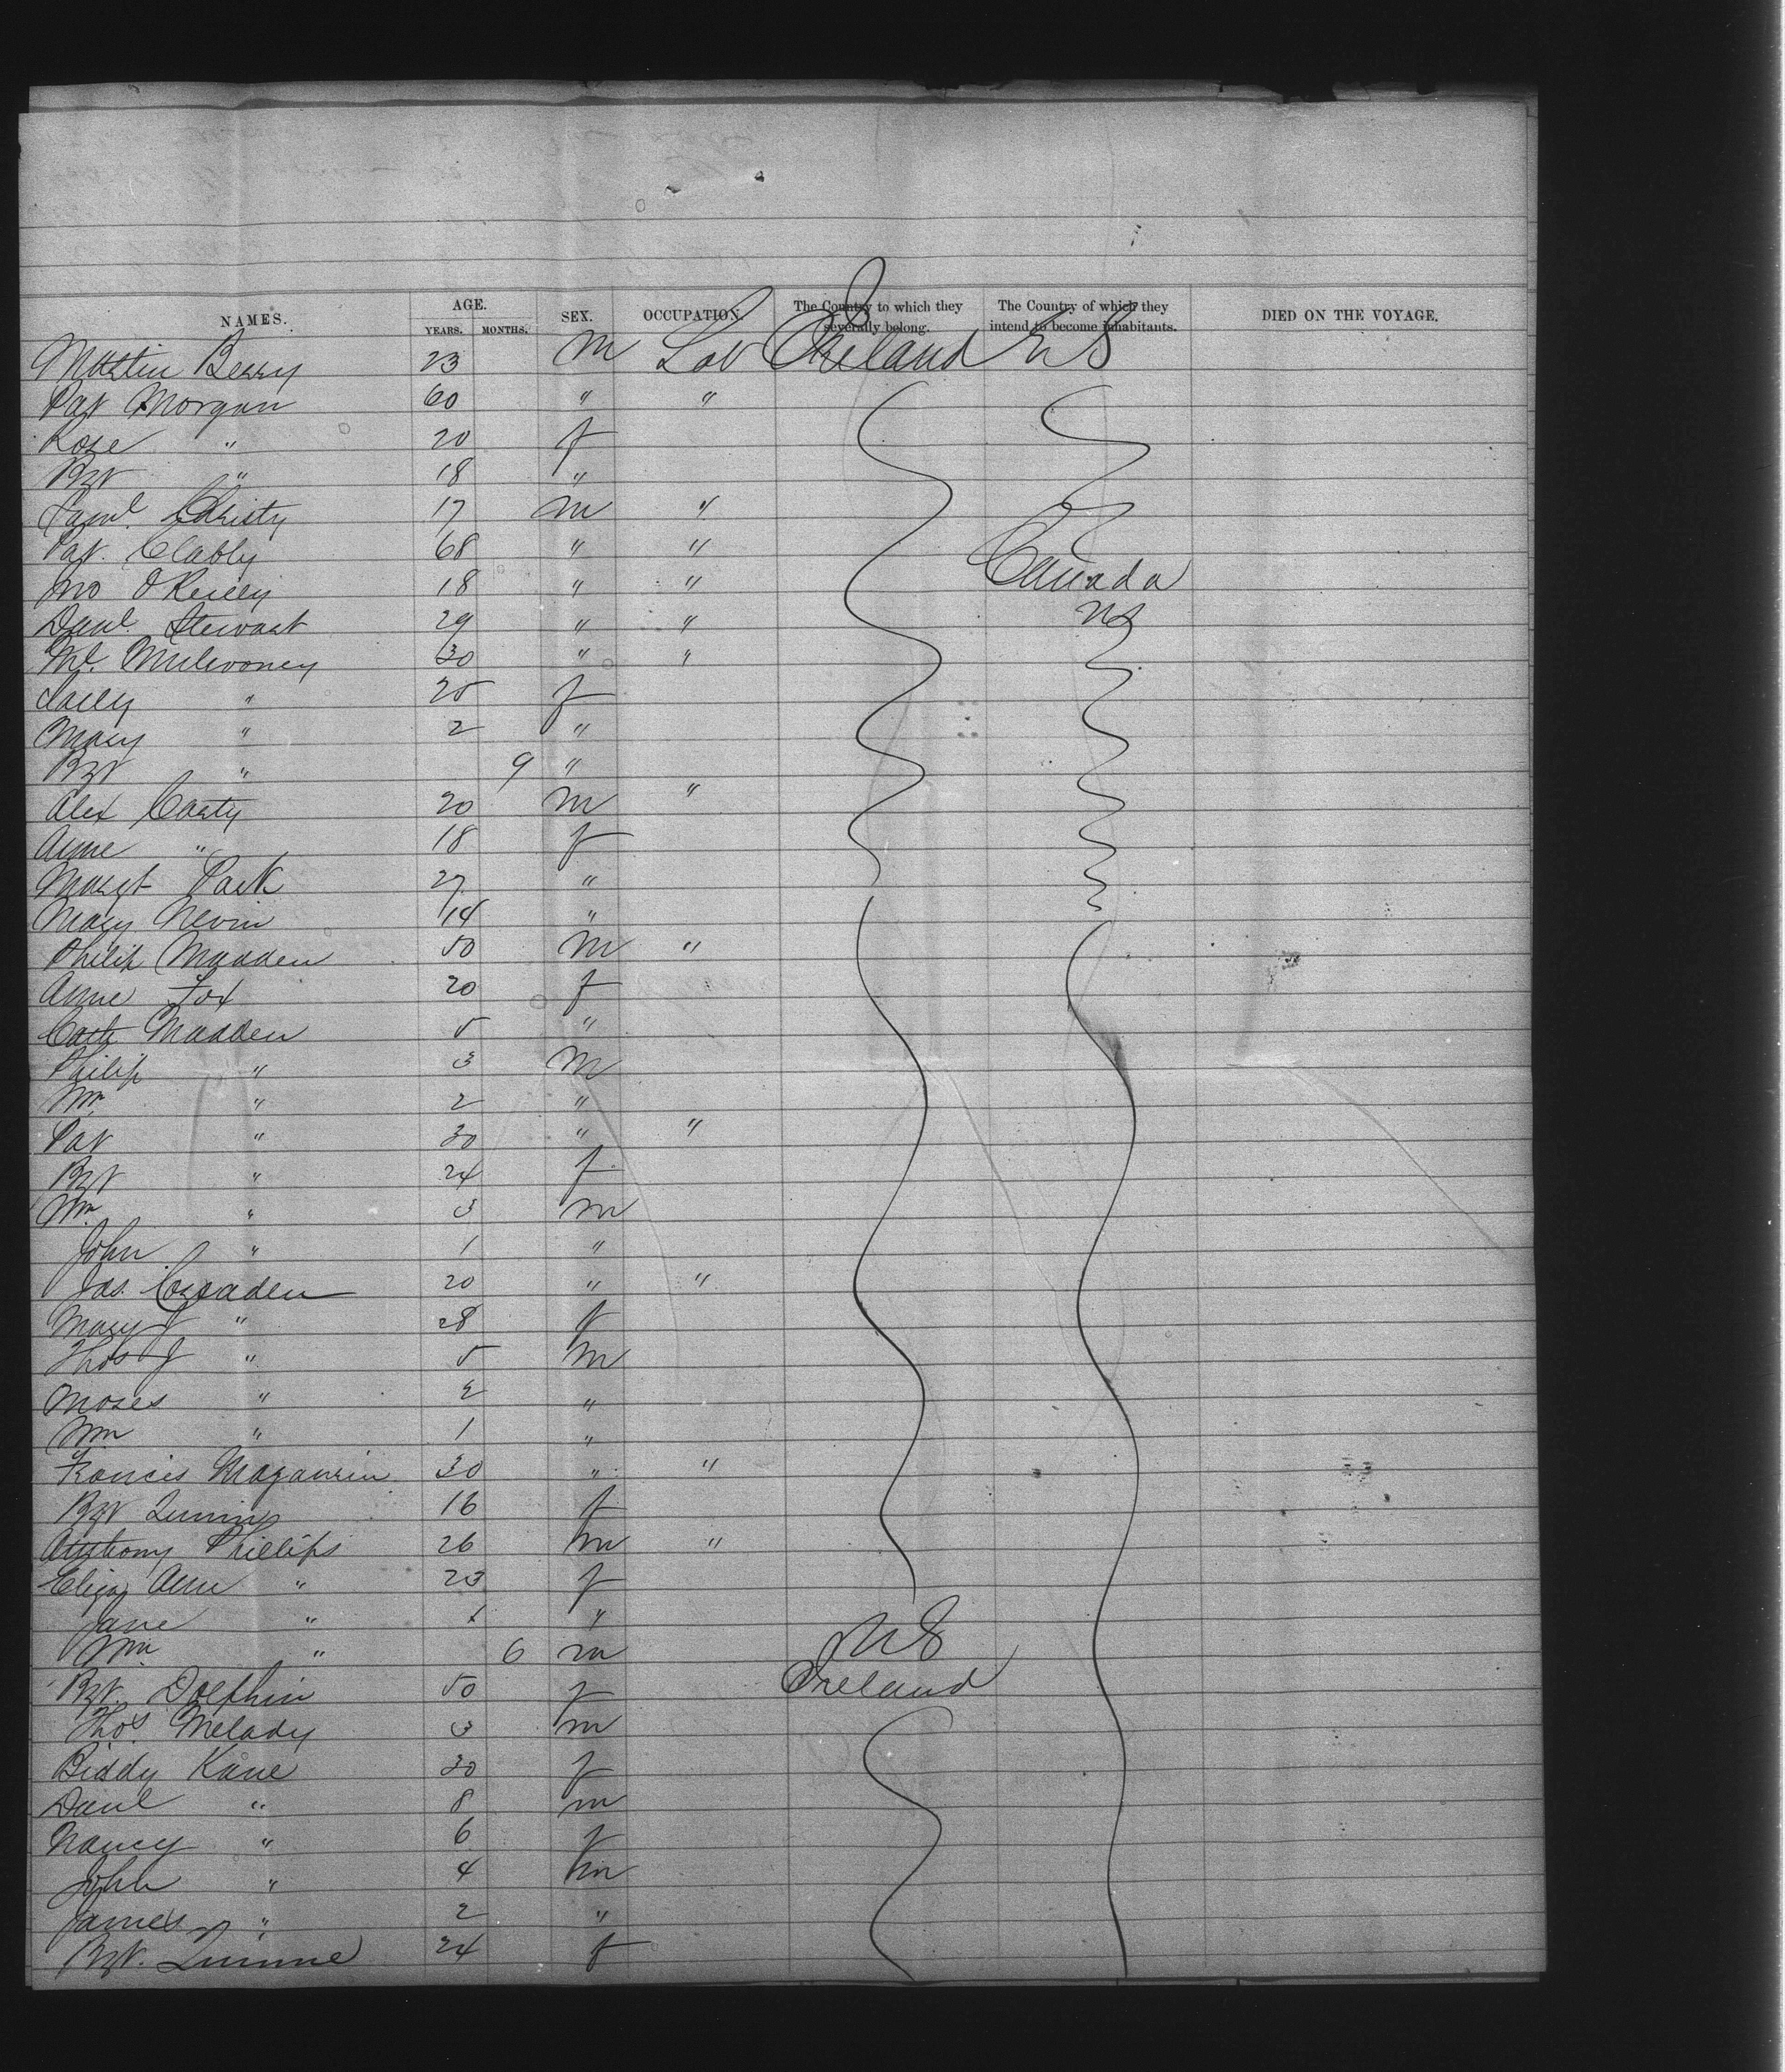 NAMES. AGE. SEX. OCCUPATION. The Country to which they severally belong. The Country of which they intend to become inhabitants. DIED ON THE VOYAGE.
YEARS. MONTHS.
Martin Berry 23 m Lab Ireland US
Pat Morgan 60 " "
Rose " 20 f
Bgt " 18 "
Saml. Christy 17 m "
Pat. Clabby 68 " "
Jno O'Reilly 18 " " Canada
Danl. Stewart 29 " " US
Ml. Mulvooney 30 " "
Sally " 25 f
Mary " 2 "
Bgt " 9 "
Alex Carty 20 m "
Anne " 18 f
Margt Park 27 "
Mary Nevin 14 "
Philip Madden 50 m "
Anne Fox 20 f
Cath Madden 5 "
Philip " 3 m
Wm " 2 "
Pat " 30 " "
Bgt " 24 f
Wm " 3 m
John " 1 "
Jas. Creaden 20 " "
Mary J " 28 f
Thos J " 5 m
Moses " 2 "
Wm " 1 "
Francis Magaurin 30 " "
Bgt 16 f
Anthony Phillips 26 m "
Eliza Ann " 23 f
Jane " 1 "
Wm " 6 m US
Bgt. Dolphin 50 f Ireland
Thos Melady 3 m
Biddy Kane 30 f
Danl " 8 m
Nancy " 6 f
John " 4 m
James " 2 "
Bgt. Quinne 24 f